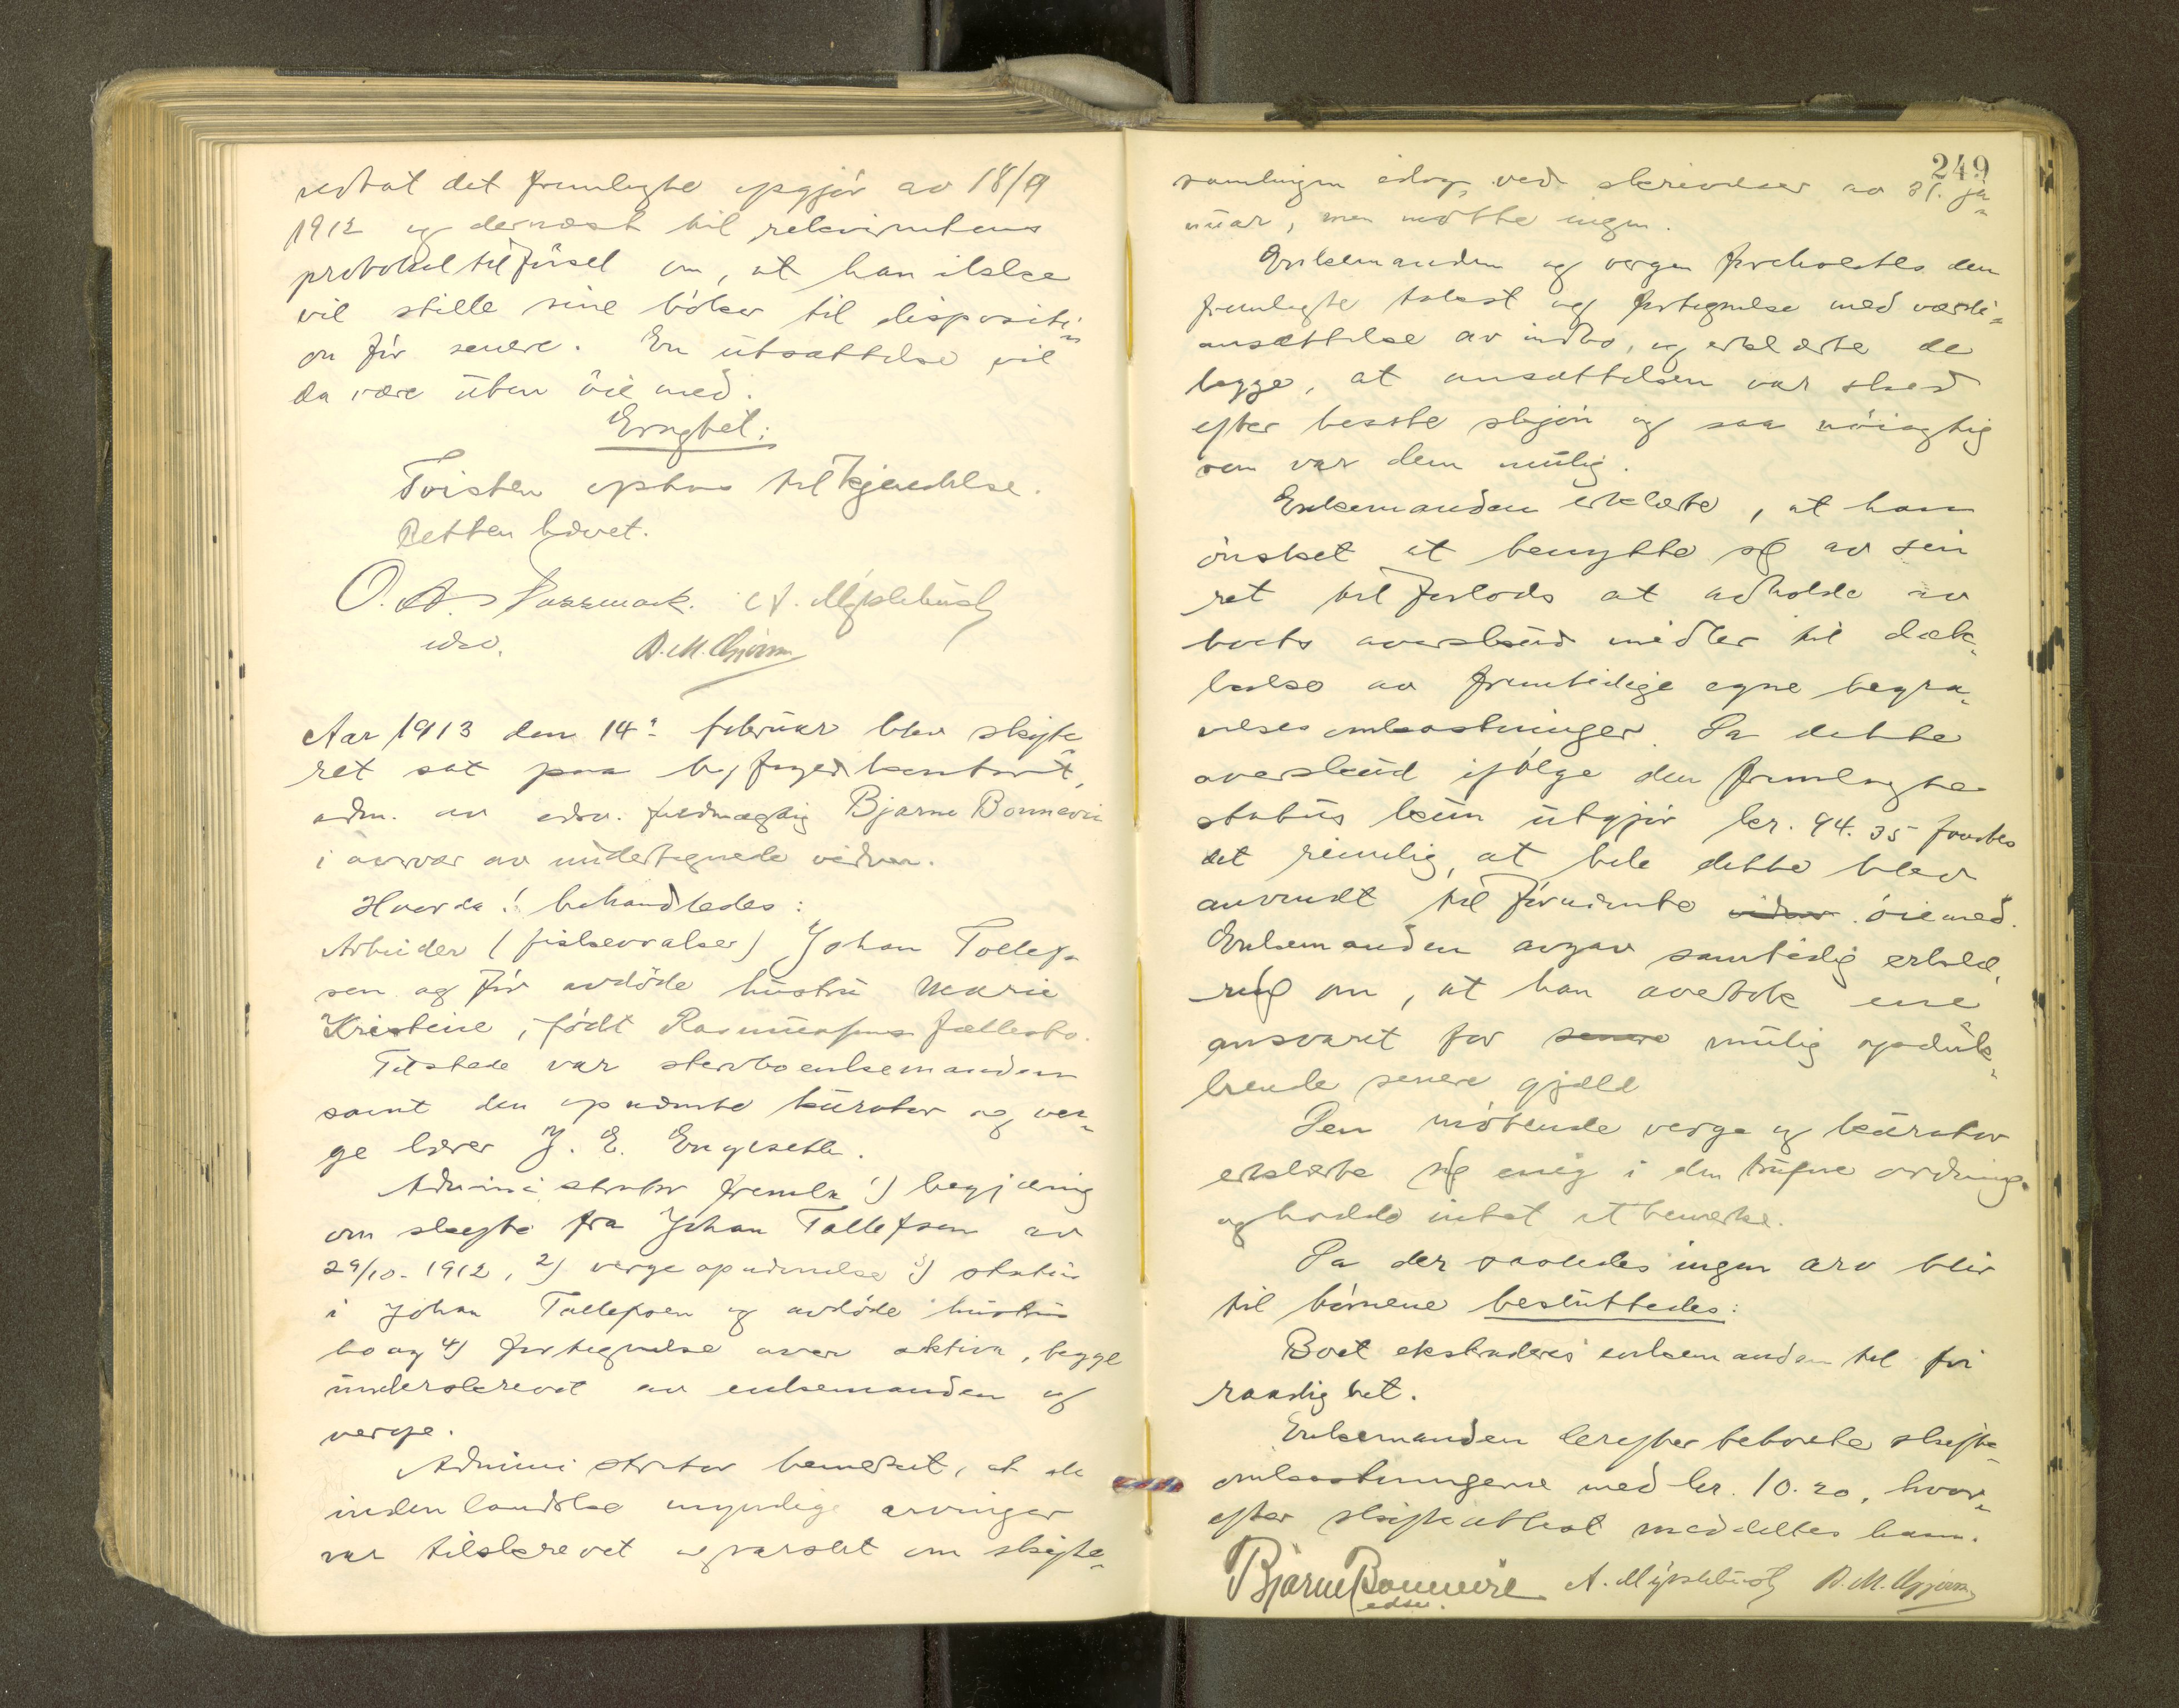 vedtat det fremlagte opgjör av 18/9
1912 og dernæst til rekvirentens
protokoltilförsel om, at han ikke
vil stille sine böker til dispositi-
on för senere. En utsættelse vil
da være uten öiemed.
Eragtet:
Tvisten optas til kjendelse.
Retten hævet.
O. A. A. Myklebust
edsv.
Aar 1913 den 14: februar blev skifte-
ret sat paa byfogedkontoret,
adm. av edsv. fuldmægtig Bjarne Bonnevie
i nærvær av undertegnede vidner.
Hvorda: behandledes:
Arbeider (fiskevraker) Johan Tollef-
sen og för avdöde hustru Marie
Kristine, födt Rasmussens fællesbo.
Tilstede var stervboenkemanden
samt den opnævnte kurator og ver-
ge lærer J. E. Engesetth.
Administrator fremla 1) begjæring
om skifte fra Johan Tollefsen av
29/10-1912, 2) vergeopnævnelse 3) status
i Johan Tollefsen og avdöde hustrus
bo og 4) fortegnelse over aktiva, begge
underskrevet av enkemanden og
verge.
Administrator bemerket, at de
indenlandske myndige arvinger
var tilskrevet og varslet om skifte-
249
samlingen idag, ved skrivelser av 31. ja-
nuar, men mötte ingen.
Enkemanden og vergen foreholdtes den
fremlagte takst og fortegnelse med værdi-
ansættelse av indbo, og erklærte de
begge, at ansættelsen var skeed
efter beste skjön og saa nöiagtig
som var dem mulig.
Enkemanden erklærte, at han
önsket at benytte sig av sin
ret til forlods at avholde av
boets overskud midler til dæk-
kelse av fremtidige egne begra-
velsesomkostninger. Da dette
overskud ifölge den fremlagte
status kun utgjör kr. 94.35 fandtes
det rimelig, at hele dette blev
anvendt til förnævnte öiemed.
Enkemanden avgav samtidig erklæ-
ring om, at han overtok ene
ansvaret for senere mulig opduk-
kende senere gjæld
Den mötende verge og kurator
erklærte sig enig i den trufne ordning
og hadde intet at bemerke.
Da der saaledes ingen arv blir
til börnene besluttedes:
Boet ekstraderes enkemanden til fri
raadighet.
Enkemanden derefter betalte skifte-
omkostningerne med kr. 10.20, hvor-
efter skifteattest meddeltes ham.
Bjarne Bonnevie A. Myklebust
edsv.